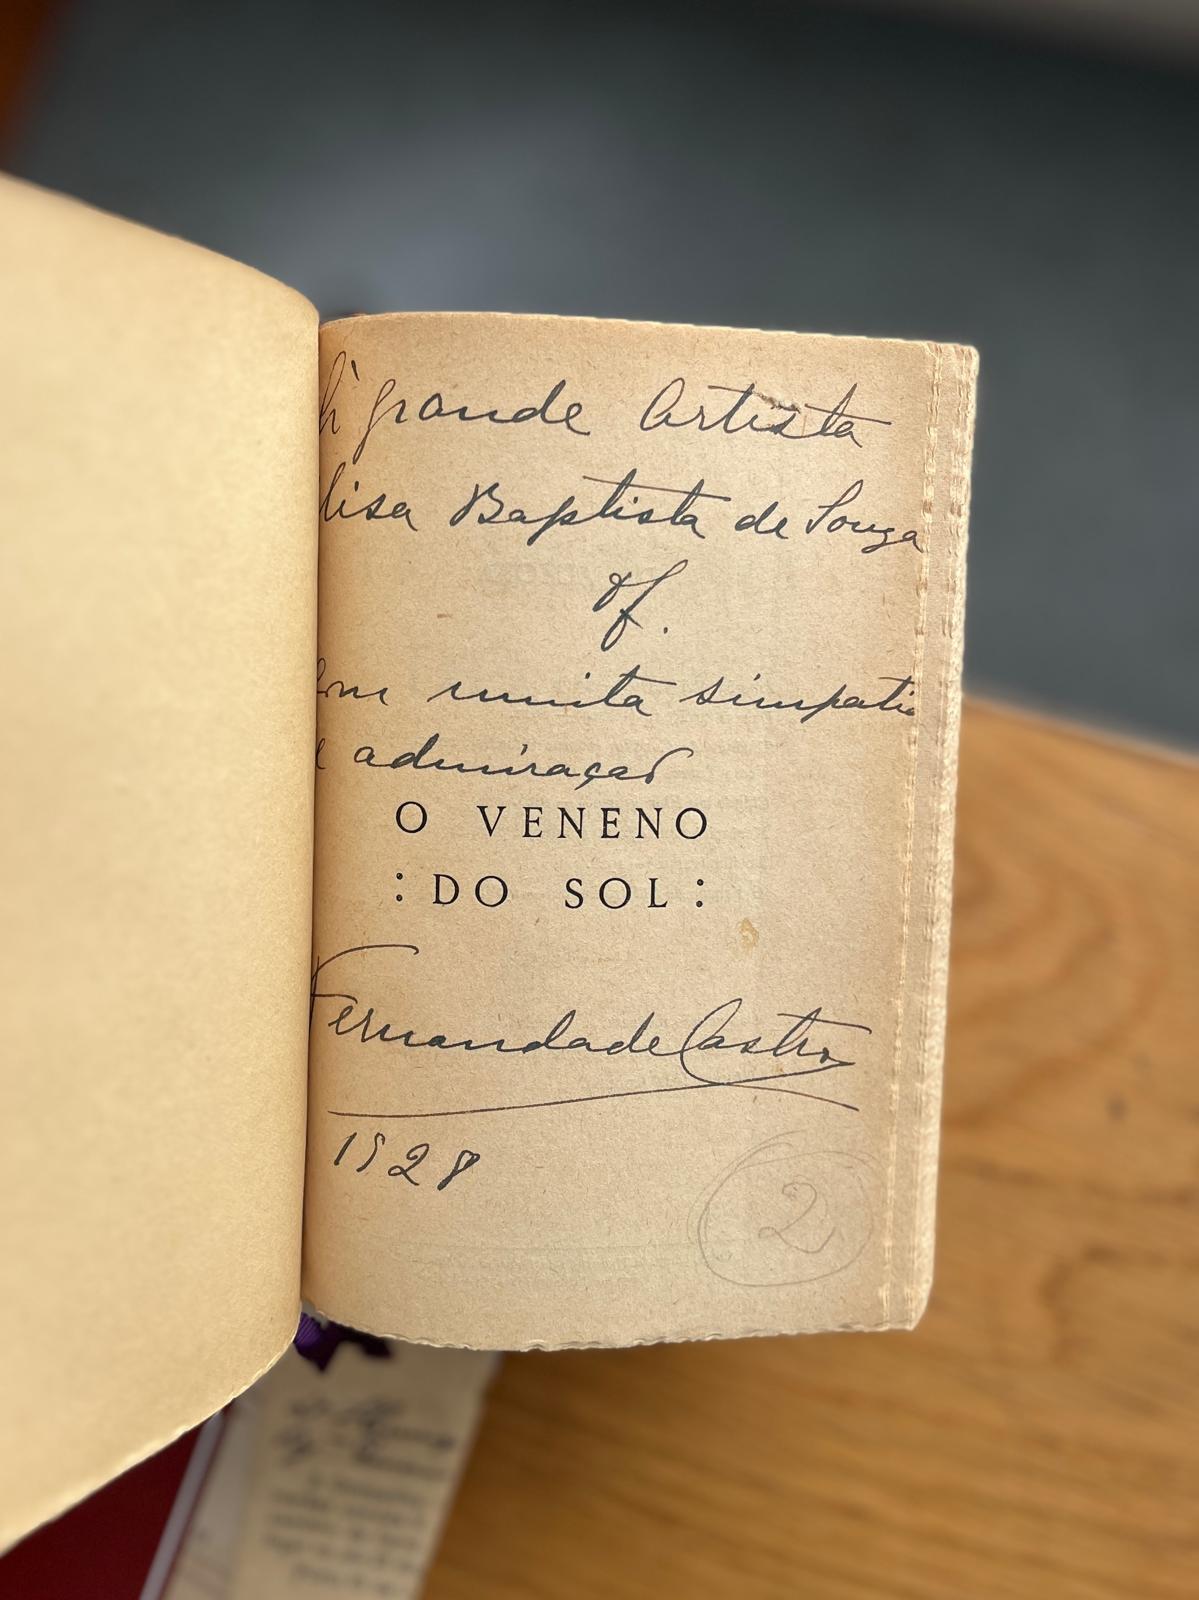 À grande Artista
lisa Baptista de Souza
of.
com muita simpati
e admiração
O VENENO
: DO SOL :
Fernanda de Castro
1928
2